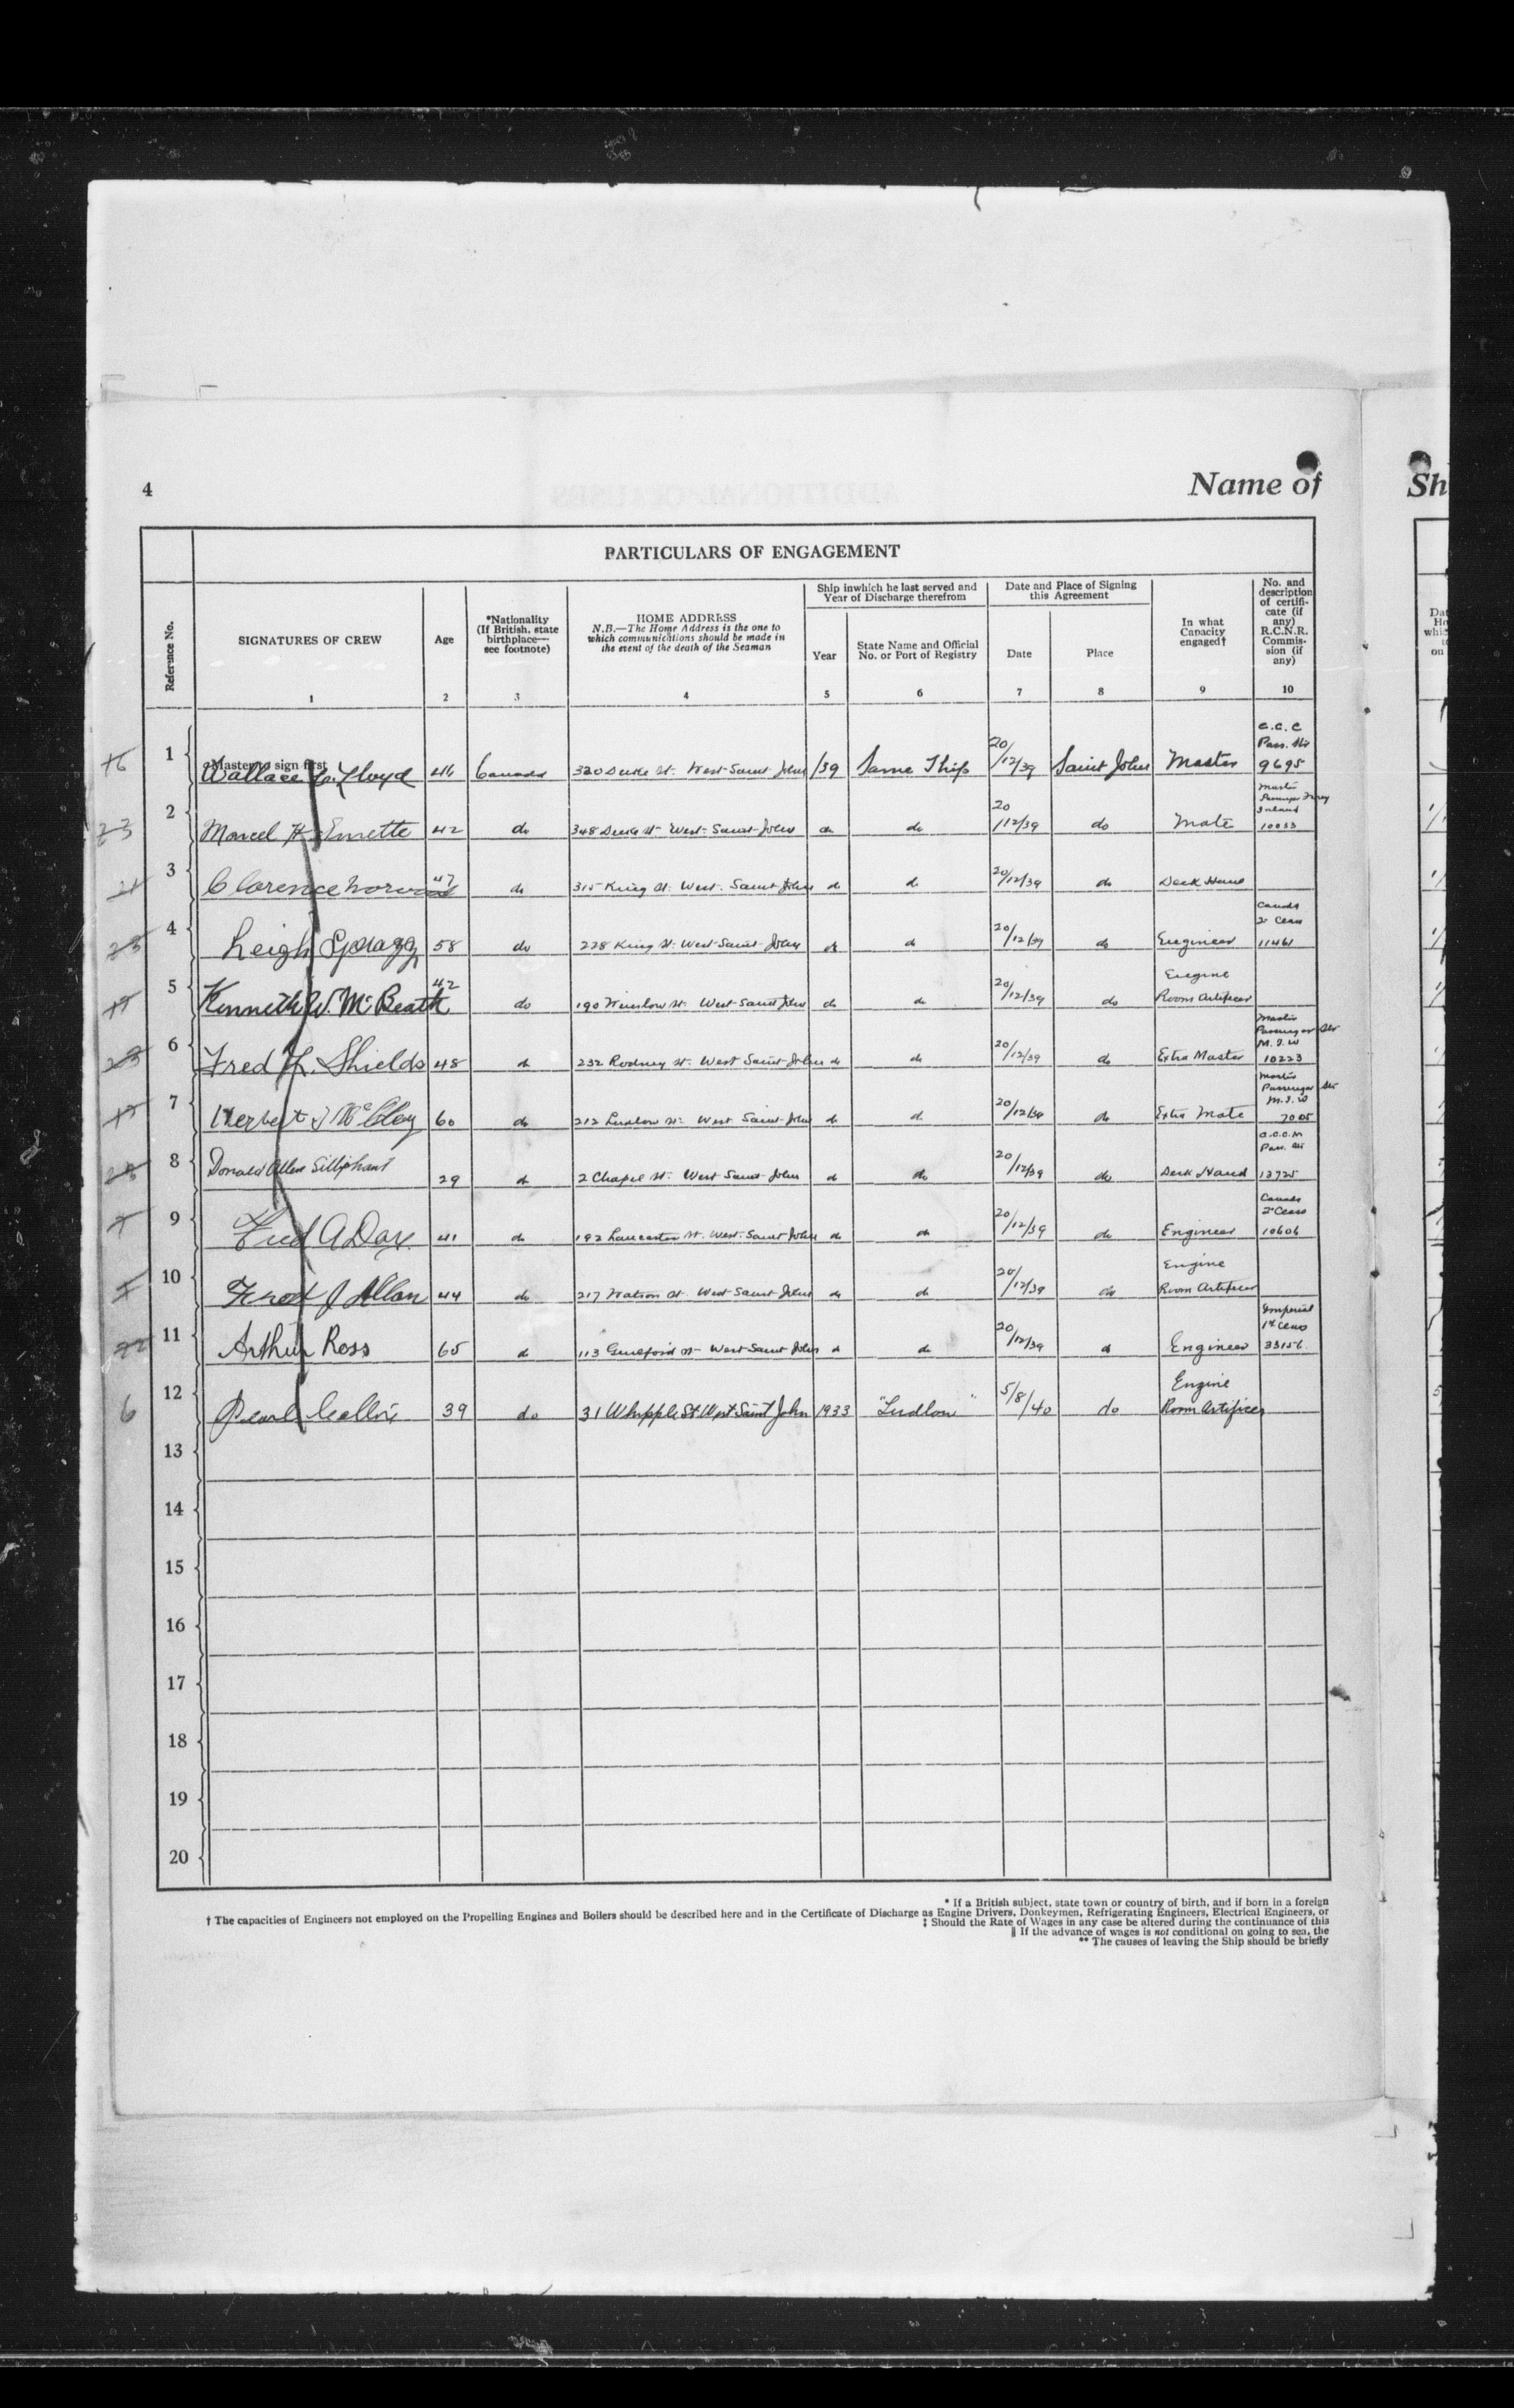 4
Name of
Sh
PARTICULARS OF ENGAGEMENT
Reference No.
SIGNATURES OF CREW
Age
*Nationality
(If British, state
birthplace—
see footnote)
HOME ADDRESS
N.B.—The Home Address is the one to
which communications should be made in
the event of the death of the Seaman
Ship inwhich he last served and
Year of Discharge therefrom
Year
State Name and Official
No. or Port of Registry
Date and Place of Signing
this Agreement
Date
Place
In what
Capacity
engaged†
No. and
description
of certifi-
cate (if
any)
R.C.N.R.
Commis-
sion (if
any)
1 2 3 4 5 6 7 8 9 10
Master to sign first
1 Wallace Lloyd 46 Canada 320 Duke St. West Saint John /39 Same Ship 20/12/39 Saint John Master 9695
2 42 do 348 Duke St West Saint John do do 20/12/39 do Mate 10033
3 Clarence 47 do 315 King St. West. Saint John do do 20/12/39 do Deck Hand
4 Leigh Spragg 58 do 228 King St. West Saint John do do 20/12/39 do Engineer 11461
5 Kenneth W. McBeath 42 do 190 Winslow St. West Saint John do do 20/12/39 do Engine Room Artificer
6 Fred H. Shields 48 do 232 Rodney St. West Saint John do do 20/12/39 do Extra Master 10223
7 Herbert 60 do 212 Ludlow St. West Saint John do do 20/12/39 do Extra Mate 7005
8 Donald Allen Silliphant 29 do 2 Chapel St. West Saint John do do 20/12/39 do Deck Hand 13725
9 Fred A 41 do 192 Lancaster St. West. Saint John do do 20/12/39 do Engineer 10606
10 Fred J Allan 44 do 217 Watson St. West Saint John do do 20/12/39 do Engine Room Artificer
11 Arthur Ross 65 do 113 Guilford St West Saint John do do 20/12/39 do Engineer 33156
6 12 39 do 31 Whipple St West Saint John 1933 "Ludlow" 5/8/40 do Engine Room Artificer
13
14
15
16
17
18
19
20
* If a British subject, state town or country of birth, and if born in a foreign
† The capacities of Engineers not employed on the Propelling Engines and Boilers should be described here and in the Certificate of Discharge as Engine Drivers, Donkeymen, Refrigerating Engineers, Electrical Engineers, or
‡ Should the Rate of Wages in any case be altered during the continuance of this
|| If the advance of wages is not conditional on going to sea, the
** The causes of leaving the Ship should be briefly